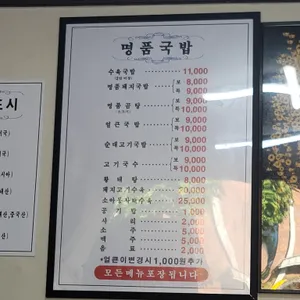 명품국밥
수육국밥 11,000
명품돼지국밥 보 8,000
특 9,000
명품곰탕 보 9,000
특 10,000
얼큰국밥 보 9,000
특 10,000
순대고기국밥 보 9,000
특 10,000
고기국수 보 9,000
특 10,000
황태탕 8,000
돼지고기수육 20,000
소아롱사태수육 25,000
공기밥 1,000
사리 2,000
소주 5,000
맥주 5,000
음료 2,000
*얼큰이변경시1,000원추가
모든메뉴포장됩니다